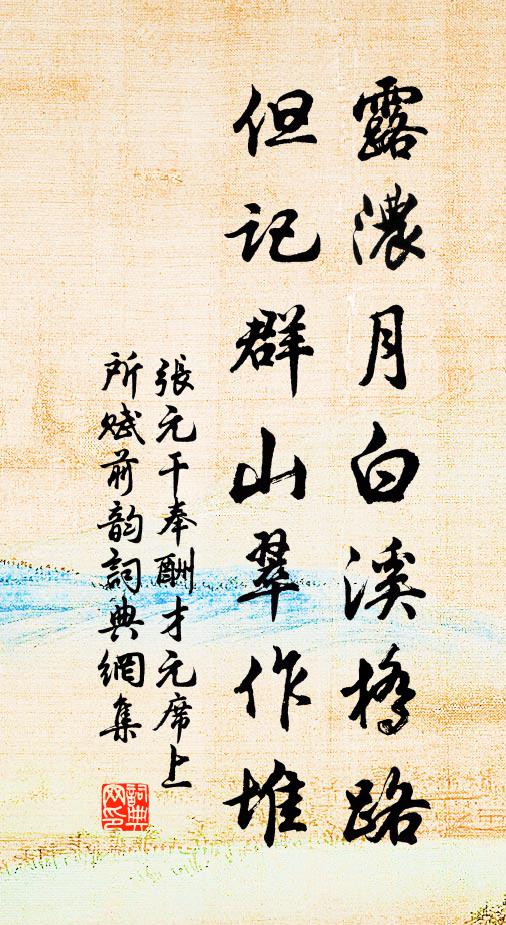 露濃月白溪橋路
但記群山翠作堆
張元干奉酬才元席上
所賦前韵詞典網集
詞典网印